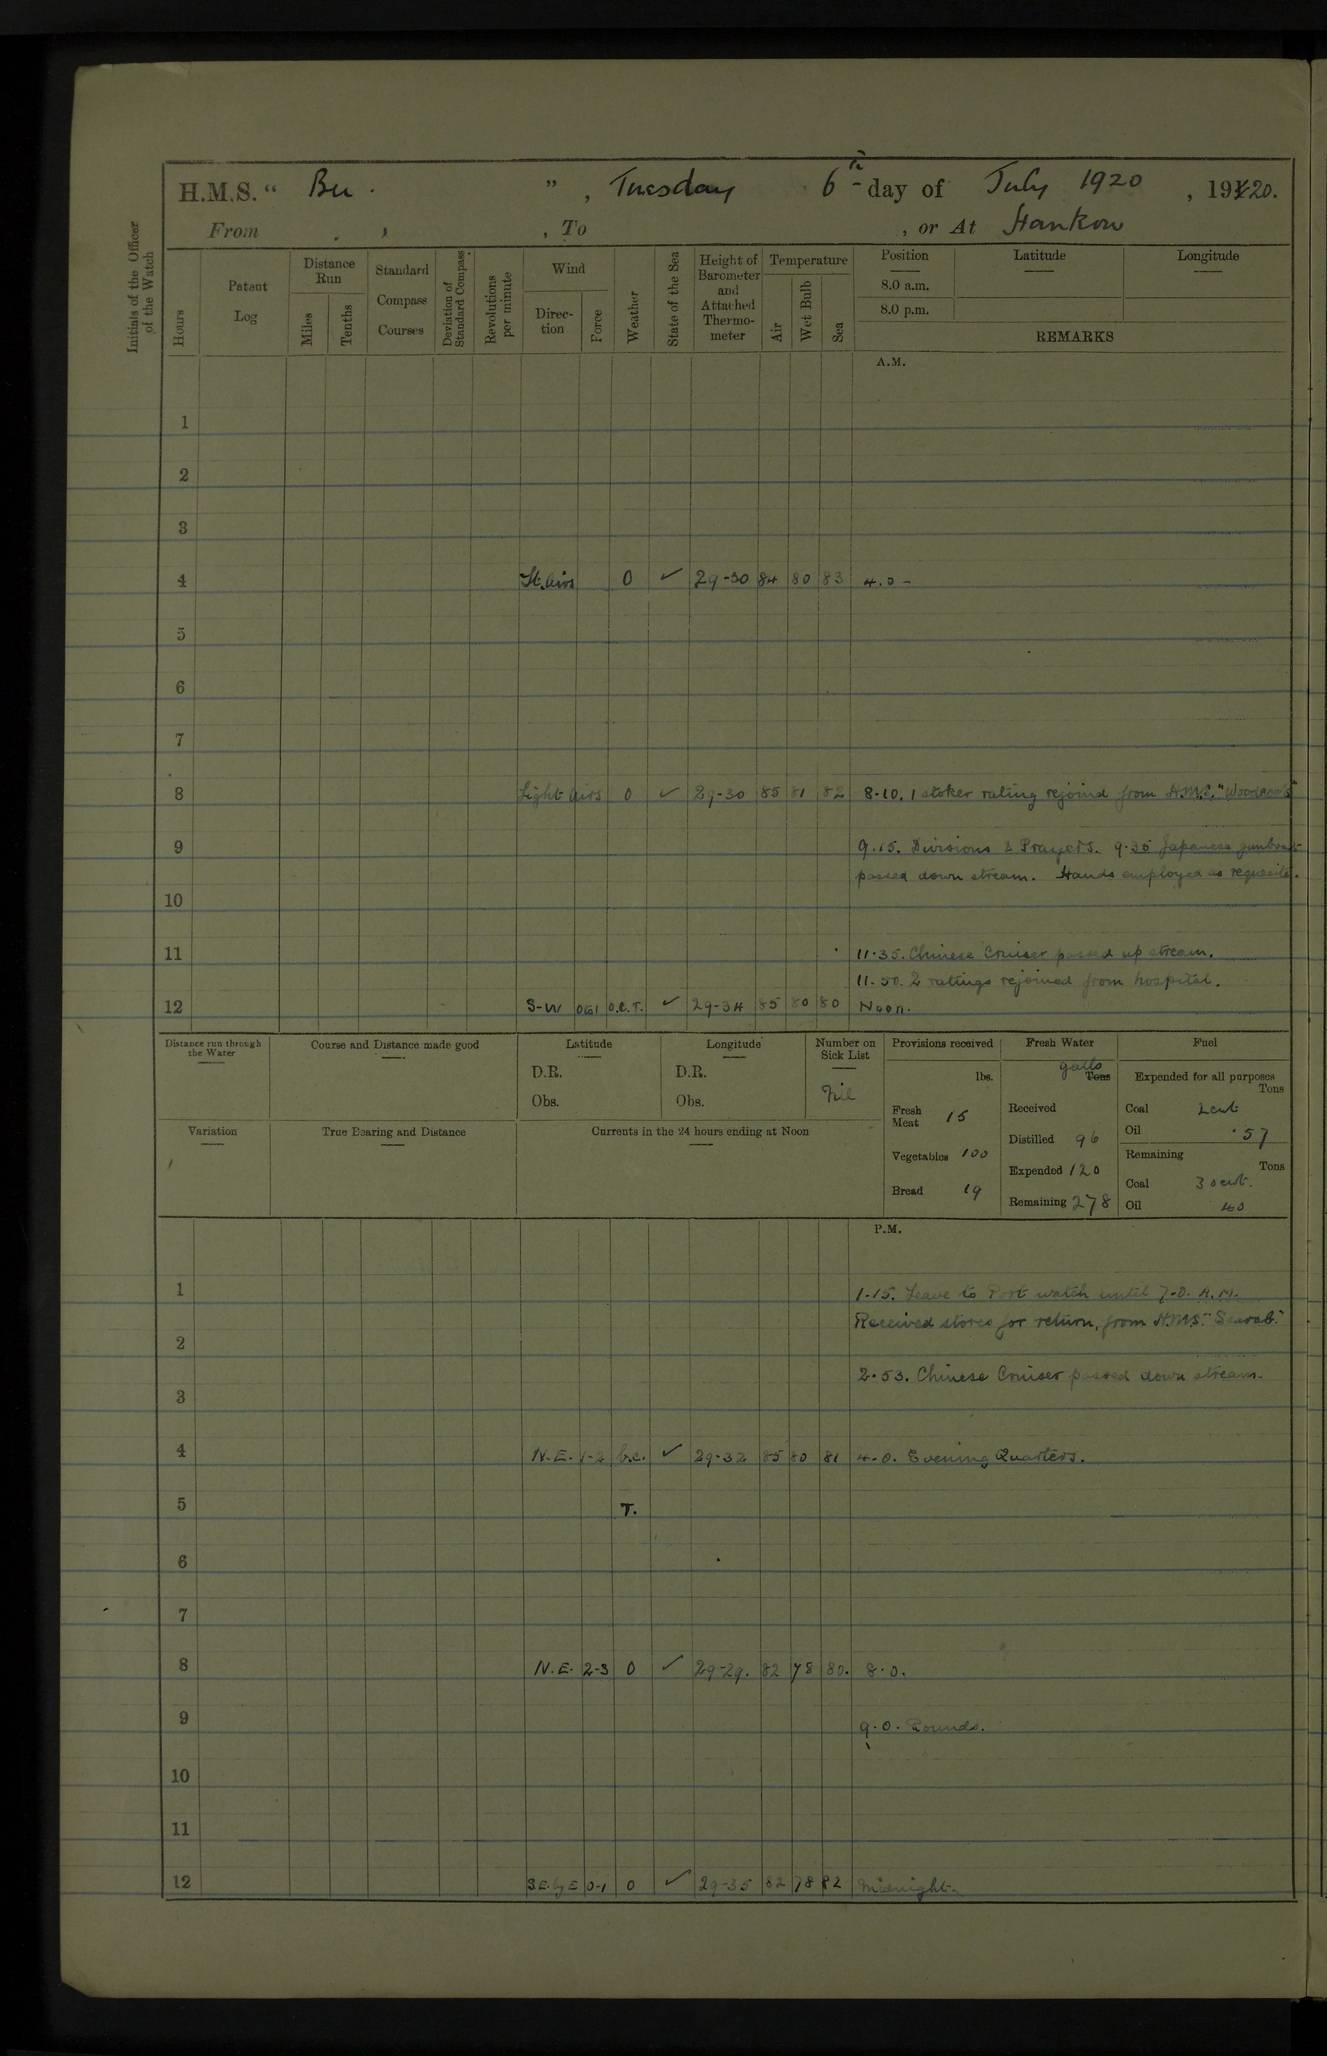 H.M.S. " Bee. ", Tuesday 6th day of July 1920, 1920.
From , To , or At Hankow
Initials of the Officer of the Watch
Hours
Patent Log
Distance Run
Miles
Tenths
Standard Compass Courses
Deviation of Standard Compass
Revolutions per minute
Wind
Direction
Force
Weather
State of the Sea
Height of Barometer and Attached Thermometer
Temperature
Air
Wet Bulb
Sea
Position
8.0 a.m.
8.0 p.m.
Latitude
Longitude
REMARKS
A.M.
1
2
3
4 Lt. Airs 0 ✓ 29-30 84 80 83 4.0 -
5
6
7
8 Light Airs 0 ✓ 29-30 85 81 82 8-10. 1 stoker rating rejoind from H.M.S. "Woodcock"
9 9.15. Divisions & Prayers. 9.35 Japanese gunboat
passed down stream. Hands employed as requisite.
10
11 11.35. Chinese Cruiser passed up stream.
11.50. 2 ratings rejoined from hospital.
12 S-W 0 to 1 O.C.T. ✓ 29-34 85 80 80 Noon.
Distance run through the Water
Course and Distance made good
Latitude
D.R.
Obs.
Longitude
D.R.
Obs.
Number on Sick List
Nil
Provisions received
lbs.
Fresh Meat 15
Vegetables 100
Bread 19
Fresh Water
galls
Tons
Received
Distilled 96
Expended 120
Remaining 278
Fuel
Expended for all purposes
Tons
Coal 2 cwt
Oil .57
Remaining
Tons
Coal 30 cwt.
Oil 40
Variation
True Bearing and Distance
Currents in the 24 hours ending at Noon
P.M.
1 1-15. Leave to Port watch until 7-0. A.M.
Received stores for return, from H.M.S. "Scarab."
2
2.53. Chinese Cruiser passed down stream.
3
4 N.E. 1-2 b.c. ✓ 29-32 85 80 81 4-0. Evening Quarters.
5 T.
6
7
8 N.E. 2-3 0 ✓ 29-29. 82 78 80. 8.0.
9 9.0. Rounds.
10
11
12 S.E. by E 0-1 0 ✓ 29-35 82 78 82 Midnight.